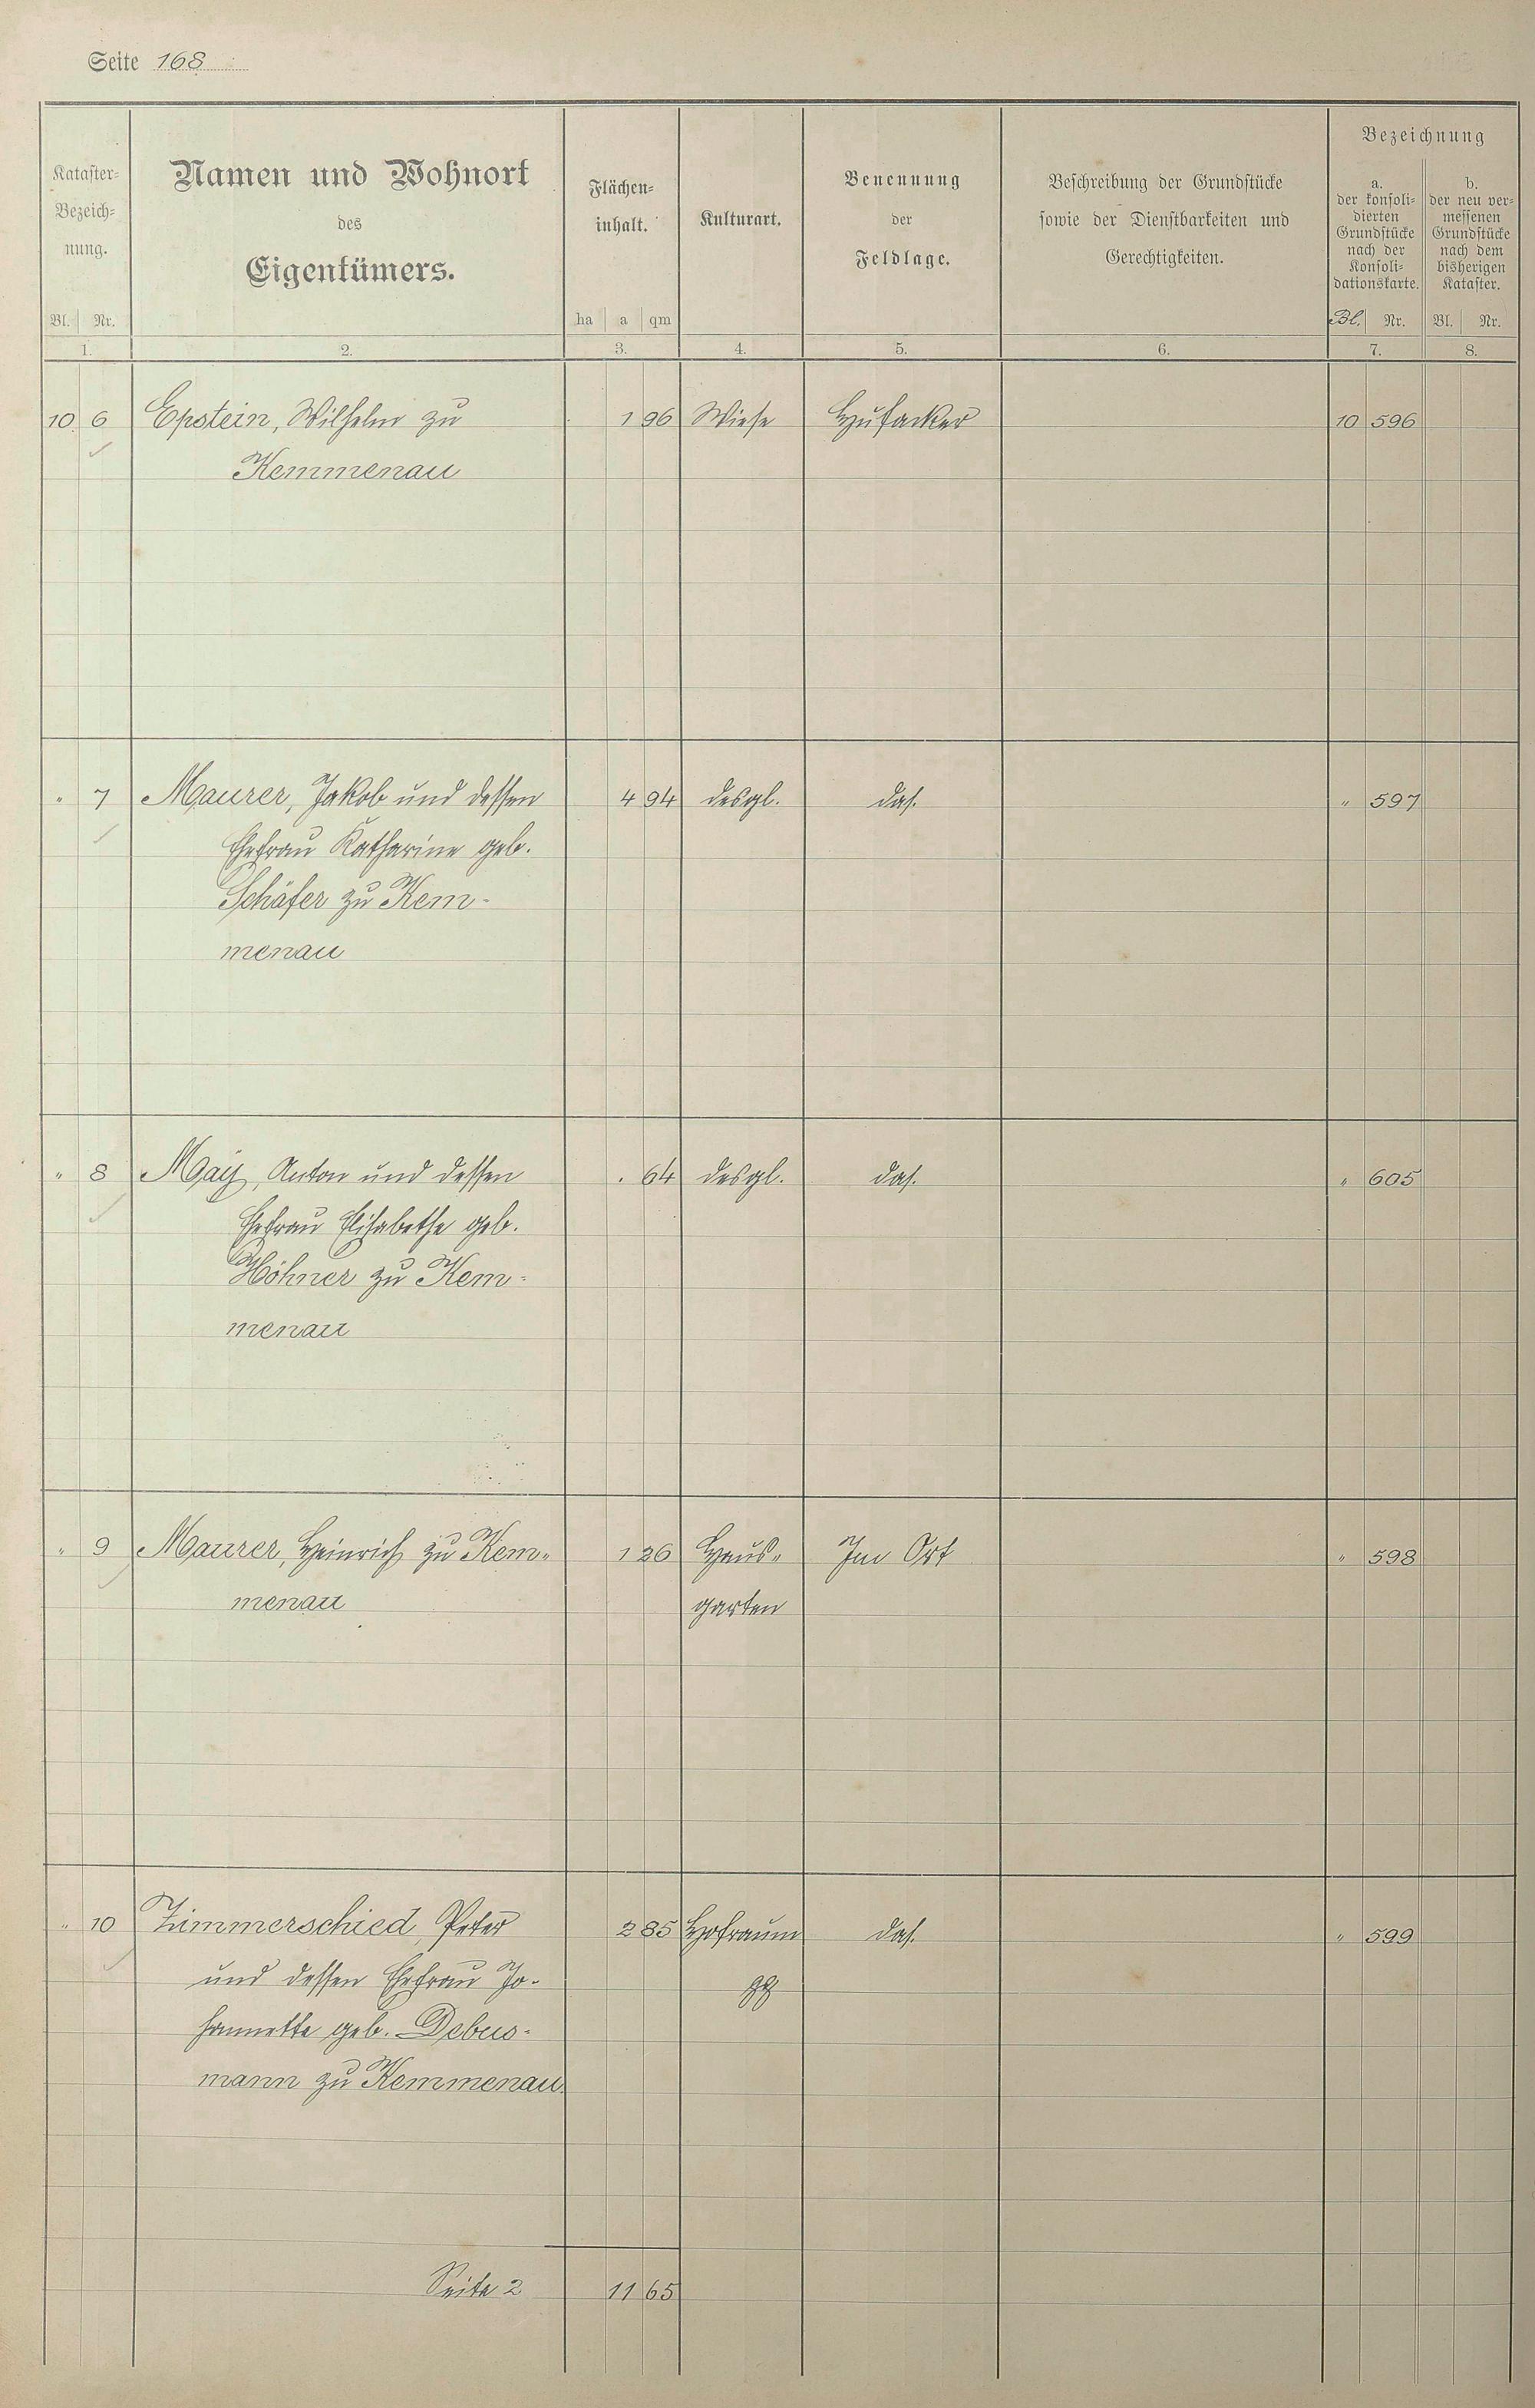 Seite 168
Kataster-
Bezeich-
nung.
Bl. Nr.
1.
Namen und Wohnort
des
Eigentümers.
2.
Flächen-
inhalt.
ha a qm
3.
Kulturart.
4.
Benennung
der
Feldlage.
5.
Beschreibung der Grundstücke
sowie der Dienstbarkeiten und
Gerechtigkeiten.
6.
Bezeichnung
a.
der konsoli-
dierten
Grundstücke
nach der
Konsoli-
dationskarte.
Bl. Nr.
7.
b.
der neu ver-
messenen
Grundstücke
nach dem
bisherigen
Kataster.
Bl. Nr.
8.
10 6 Epstein, Wilhelm zu 1 96 Wiese Hufacker 10 596
Kemmenau
" 7 Maurer, Jakob und dessen 4 94 desgl. das. " 597
Ehefrau Katharine geb.
Schäfer zu Kem-
menau
" 8 May, Anton und dessen . 64 desgl. das. " 605
Ehefrau Elisabethe geb.
Höhner zu Kem-
menau
" 9 Maurer, Heinrich zu Kem- 1 26 Haus- Im Ort " 598
menau garten
" 10 Zimmerschied, Peter 2 85 Hofraum das. " 599
und dessen Ehefrau Jo-
hannette geb. Debus-
mann zu Kemmenau
Seite 2 11 65